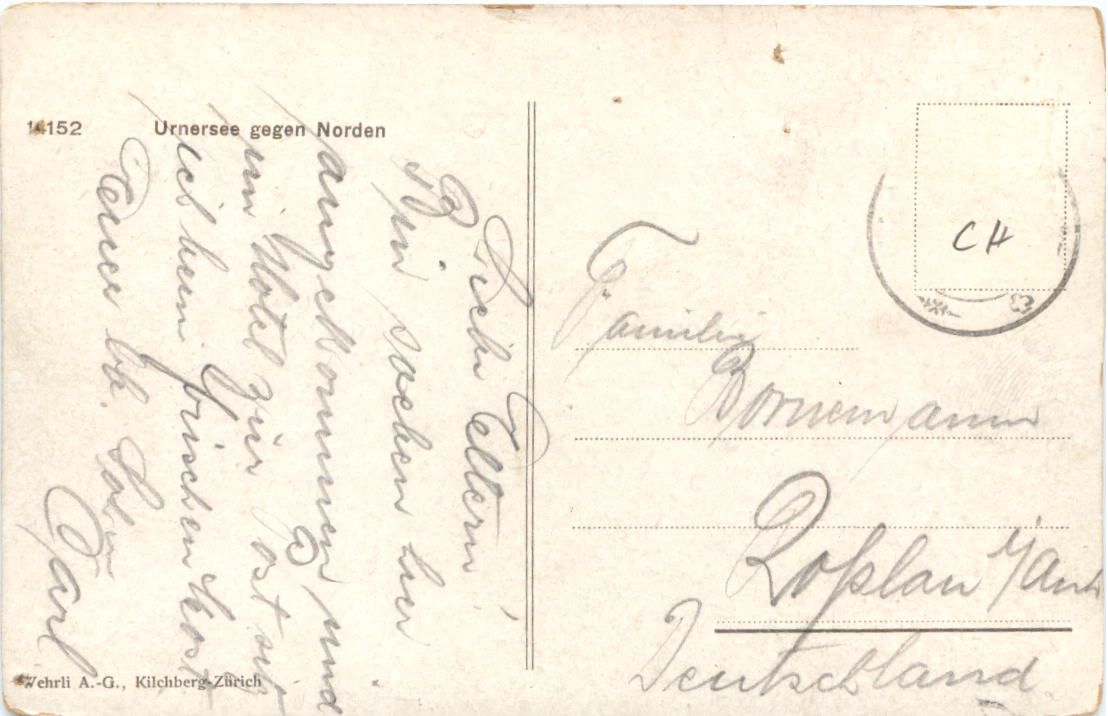 14152 Urnersee gegen Norden
Liebe Eltern!
Bin soeben hier
angekommen und
im Hotel zur Ost
ich beim frischen Most
Euer lb. Sohn
Carl
CH
Familie
Bornemann
Roßlau i/Anh
Deutschland.
Wehrli A.-G., Kilchberg-Zürich